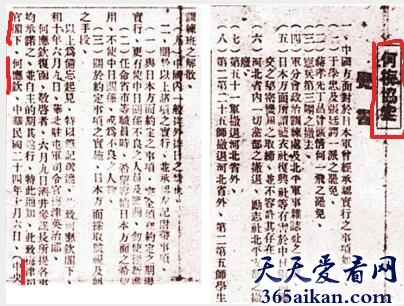 何梅協定
覺書
一、中國方面對於日本軍曾經承認實行之事項如
(一)于學忠及張廷諤一派之罷免
(二)蔣孝先丁昌曾擴情何一飛之罷免
(四)軍分會政治訓練處及北平軍事雜誌社之
(五)日本方面所謂藍衣社復興社等有害於中日
交之秘密機關之取締,並不容許其存在
(六)河北省內一切黨部之撤退,勵志社北平支
(七)第五十一軍撤退河北省外
第二十五師撤退河北省外,第二十五師學生
訓練班之解散。
(九)中國內一般排外排日之禁止
二、關於以上諸項之實行,並承認左記附帶事項
(一)與日本方面約定之事項,完全須在約定之期限
實行,更有使中日關係不良之人員及機關,勿使從新
(二)任命省市等職員時,希望容納日本方面之希望
用不使中日關係成為不良之人物
(三)關於約定事項之實施,日本方面採取監視及
之手段
以上為備忘起見,特以筆記送達,此致何應欽閣下
和十年六月九日,華北駐屯軍司令官梅津美治郎
何應欽復函,敬啟者,六月九日酒井參謀長所提各事
均承諾之,並自主的期其遂行,特此通知,此致梅津司
官閣下,何應欽,中華民國二十四年七月六日(中央
天天爱看网
www.365aikan.com